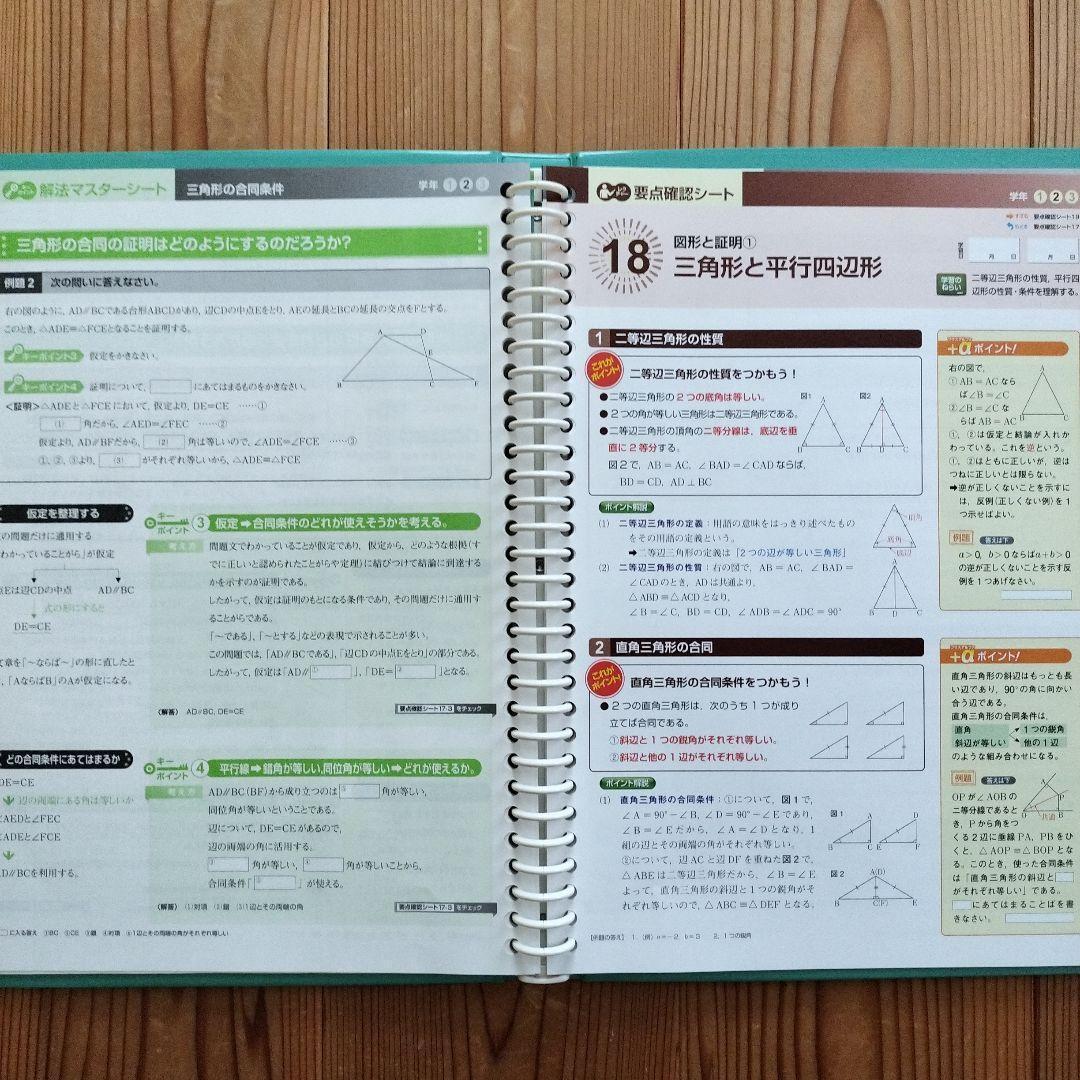 解法マスターシート 三角形の合同条件 学年 1 2 3
三角形の合同の証明はどのようにするのだろうか?
例題2 次の問いに答えなさい。
右の図のように、AD∥BCである台形ABCDがあり、辺CDの中点Eをとり、AEの延長とBCの延長の交点をFとする。
このとき、△ADE≡△FCEとなることを証明する。
キーポイント3 仮定をかきなさい。
キーポイント4 証明について、 にあてはまるものをかきなさい。
<証明>△ADEと△FCEにおいて、仮定より、DE=CE ……①
(1) 角だから、∠AED=∠FEC ……②
仮定より、AD∥BFだから、 (2) 角は等しいので、∠ADE=∠FCE ……③
①、②、③より、 (3) がそれぞれ等しいから、△ADE≡△FCE
A D
E
B C F
仮定を整理する
の問題だけに通用する
わかっていることがら」が仮定
点Eは辺CDの中点 AD∥BC
式の形にすると
DE=CE
文章を「～ならば～」の形に直したと
、「AならばB」のAが仮定になる。
キーポイント 3 仮定➡合同条件のどれが使えそうかを考える。
考え方 問題文でわかっていることが仮定であり、仮定から、どのような根拠(す
でに正しいと認められたことがらや定理)に結びつけて結論に到達する
かを示すのが証明である。
したがって、仮定は証明のもとになる条件であり、その問題だけに通用す
ることがらである。
「～である」、「～とする」などの表現で示されることが多い。
この問題では、「AD∥BCである」、「辺CDの中点Eをとり」の部分である。
したがって、仮定は「AD∥ ① 」、「DE= ② 」となる。
〈解答〉 AD∥BC, DE=CE
要点確認シート17-3 をチェック
どの合同条件にあてはまるか
DE=CE
辺の両端にある角は等しいか
∠AEDと∠FEC
∠ADEと∠FCE
AD∥BCを利用する。
キーポイント 4 平行線➡錯角が等しい,同位角が等しい➡どれが使えるか。
考え方 AD∥BC(BF)から成り立つのは ③ 角が等しい,
同位角が等しいということである。
辺について、DE=CEがあるので、
辺の両端の角に活用する。
角が等しい、 角が等しいことから、
合同条件「 」が使える。
〈解答〉 (1)対頂 (2)錯 (3)1辺とその両端の角
要点確認シート17-3 をチェック
に入る答え ①BC ②CE ③錯 ④対頂 ⑥1辺とその両端の角がそれぞれ等しい
要点確認シート 学年 1 2 3
すすむ 要点確認シート19
もどる 要点確認シート17
18 図形と証明①
三角形と平行四辺形
学習日 月 日 月 日
学習のねらい 二等辺三角形の性質,平行四
辺形の性質・条件を理解する。
1 二等辺三角形の性質
これがポイント! 二等辺三角形の性質をつかもう!
●二等辺三角形の2つの底角は等しい。
●2つの角が等しい三角形は二等辺三角形である。
●二等辺三角形の頂角の二等分線は、底辺を垂
直に2等分する。
図2で、AB=AC, ∠BAD=∠CADならば,
BD=CD, AD⊥BC
図1 A B C
図2 A B D C
ポイント解説
(1) 二等辺三角形の定義:用語の意味をはっきり述べたもの
をその用語の定義という。
➡二等辺三角形の定義は「2つの辺が等しい三角形」
(2) 二等辺三角形の性質:右の図で、AB=AC, ∠BAD=
∠CADのとき、ADは共通より,
△ABD≡△ACDとなり,
∠B=∠C, BD=CD, ∠ADB=∠ADC=90°
頂角
底角
底辺
A
B D C
+αポイント!
右の図で,
①AB=ACなら
ば∠B=∠C
②∠B=∠Cな
らばAB=AC
A
B C
①、②は仮定と結論が入れか
わっている。これを逆という。
①、②はともに正しいが、逆は
つねに正しいとは限らない。
➡逆が正しくないことを示すに
は、反例(正しくない例)を1
つ示せばよい。
例題 答えは下
a>0, b>0ならばa+b>0
の逆が正しくないことを示す反
例を1つあげなさい。
2 直角三角形の合同
これがポイント! 直角三角形の合同条件をつかもう!
●2つの直角三角形は、次のうち1つが成り
立てば合同である。
①斜辺と1つの鋭角がそれぞれ等しい。
②斜辺と他の1辺がそれぞれ等しい。
ポイント解説
(1) 直角三角形の合同条件:①について、図1で,
∠A=90°−∠B, ∠D=90°−∠Eであり,
∠B=∠Eだから、∠A=∠Dとなり、1
組の辺とその両端の角がそれぞれ等しい。
②について、辺ACと辺DFを重ねた図2で,
△ABEは二等辺三角形だから、∠B=∠E
よって、直角三角形の斜辺と1つの鋭角がそ
れぞれ等しいので、△ABC≡△DEFとなる。
図1 A D
B C E F
図2 A(D)
B C(F) E
+αポイント!
直角三角形の斜辺はもっとも長
い辺であり、90°の角に向かい
合う辺である。
直角三角形の合同条件は,
直角 1つの鋭角
斜辺が等しい 他の1辺
のような組み合わせになる。
例題 答えは下
OPが∠AOBの
二等分線であると
き、Pから角をつ
くる2辺に垂線PA, PBをひ
くと、△AOP≡△BOPとな
る。このとき、使った合同条件
は「直角三角形の斜辺と
がそれぞれ等しい」である。
にあてはまることばを書
きなさい。
A
P
O 共通 B
[例題の答え] 1.(例)a=−2, b=3 2. 1つの鋭角